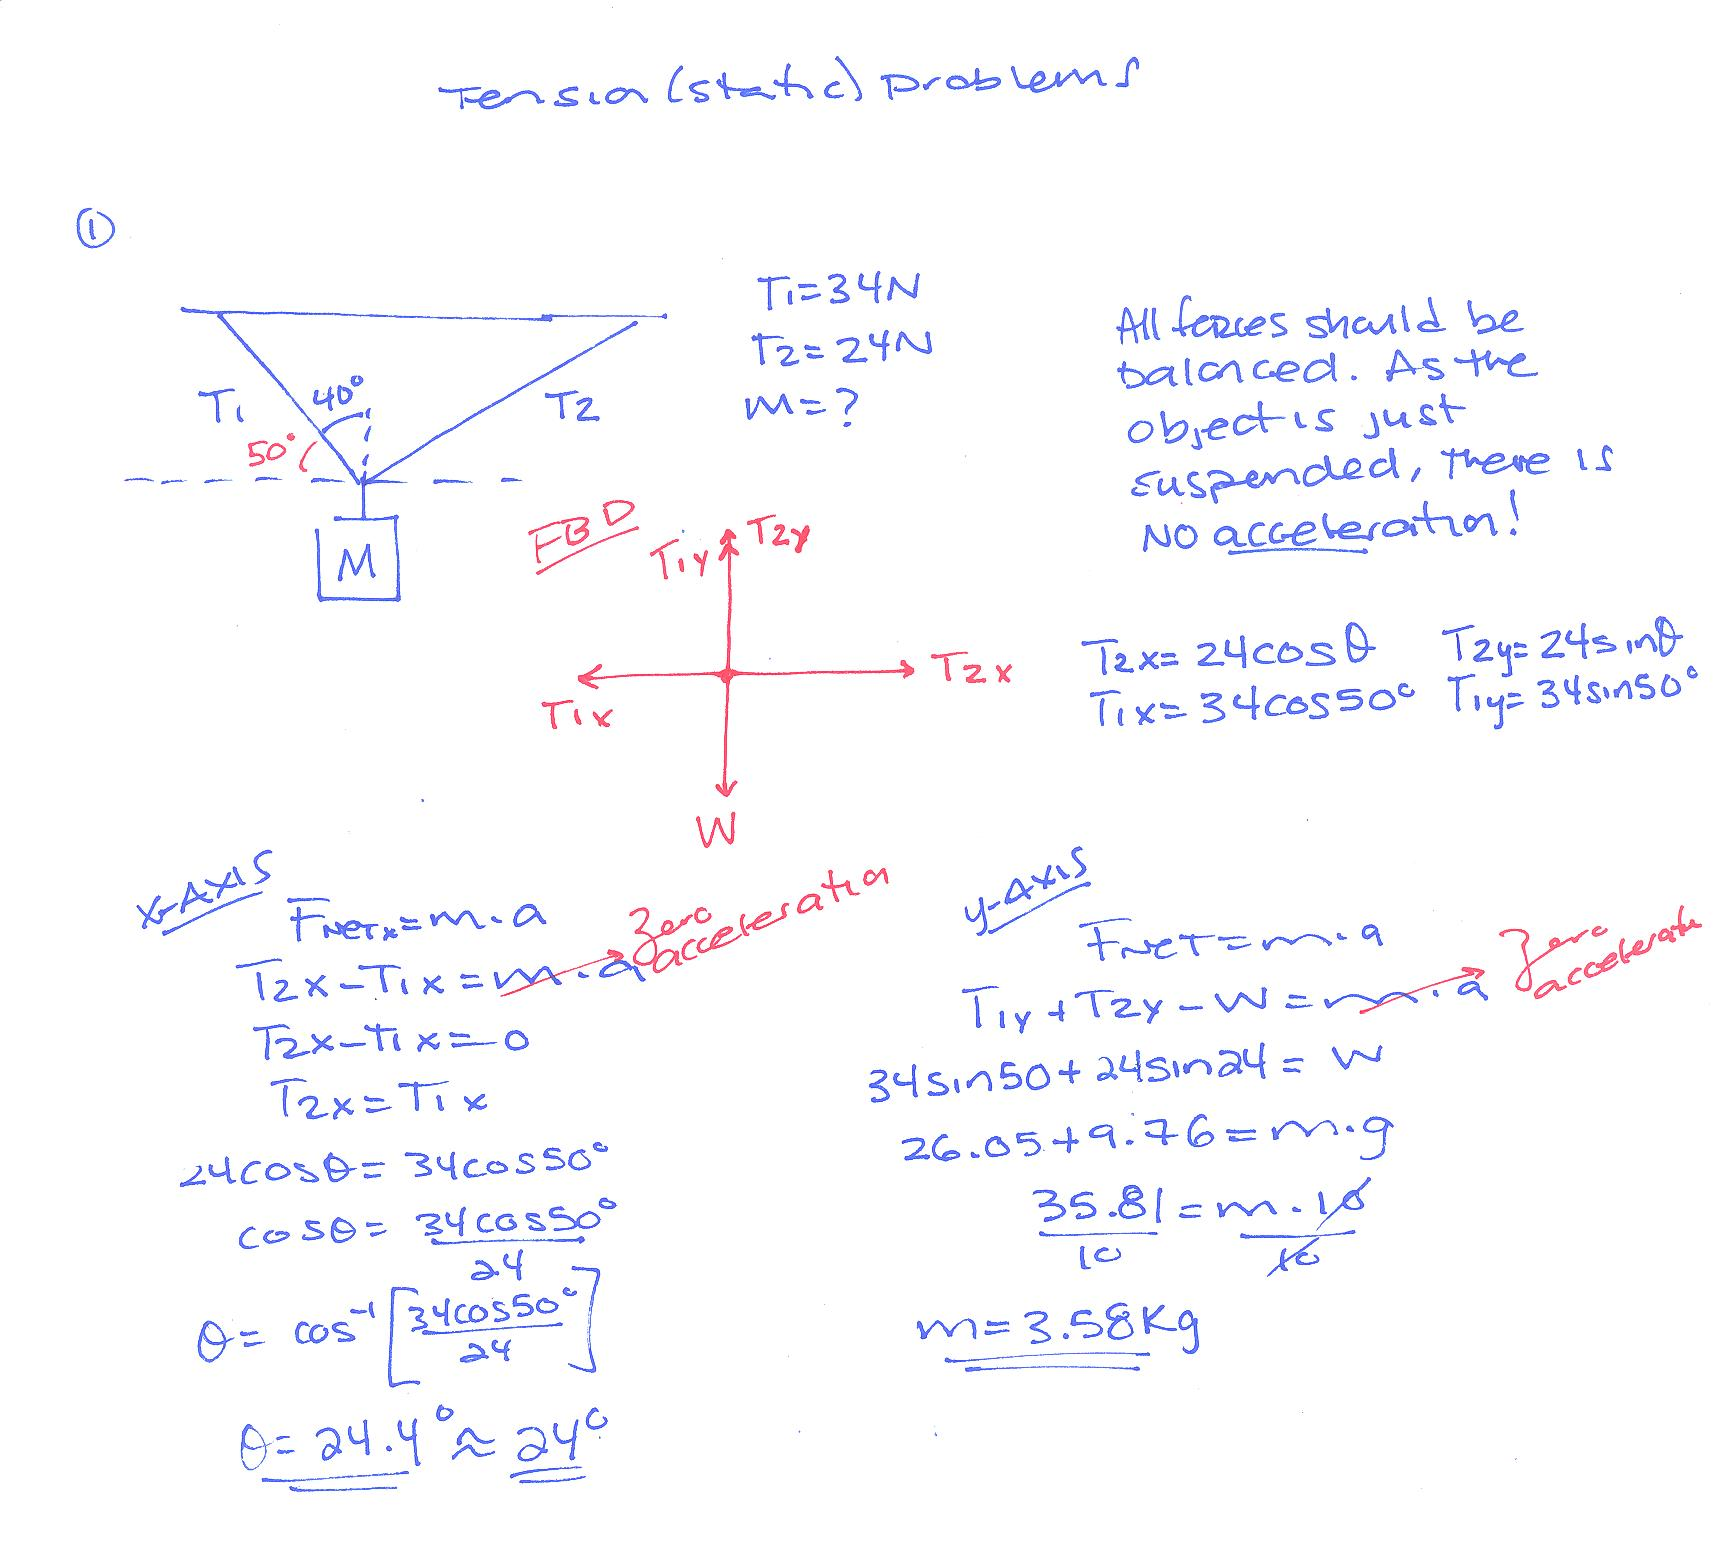 Tension (static) Problems
①
T1=34N
T2=24N
m=?
All forces should be
balanced. As the
object is just
suspended, there is
NO acceleration!
T1
40°
T2
50°
M
FBD
T1y
T2y
T2x
T1x
W
T2x= 24cosθ
T2y= 24sinθ
T1x= 34cos50°
T1y= 34sin50°
X-AXIS
FNETx=m.a
T2x-T1x=m.a
Zero
acceleration
T2x-T1x=0
T2x=T1x
24cosθ= 34cos50°
cosθ= 34cos50°
24
θ= cos-1[34cos50°
24]
θ= 24.4° ≈ 24°
y-AXIS
FNET=m.a
T1y+T2y-W=m.a
Zero
accelerate
34sin50+24sin24= W
26.05+9.76=m.g
35.81=m.10
10 10
m=3.58Kg